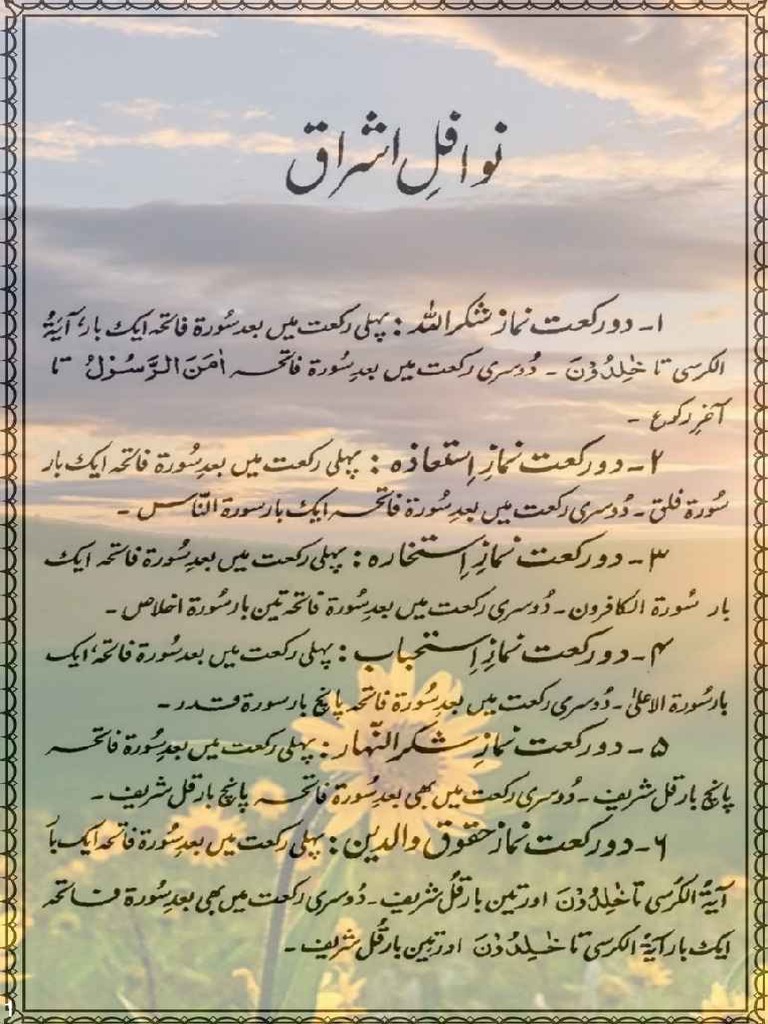 نوافلِ اشراق
۱۔ دو رکعت نماز شکر اللہ : پہلی رکعت میں بعد سُورۃ فاتحہ ایک بار، آیۃُ
الکرسی تا خٰلِدُوْنَ ۔ دُوسری رکعت میں بعدِ سُورۃ فاتحہ اٰمَنَ الرَّسُوْلُ تا
آخرِ رکوع ۔
۲۔ دو رکعت نمازِ اِستعاذہ : پہلی رکعت میں بعدِ سُورۃ فاتحہ ایک بار
سُورۃ فلق ۔ دُوسری رکعت میں بعدِ سُورۃ فاتحہ ایک بار سورۃ النّاس ۔
۳۔ دو رکعت نمازِ اِستخارہ : پہلی رکعت میں بعدِ سُورۃ فاتحہ ایک
بار سُورۃ الکافرون ۔ دُوسری رکعت میں بعدِ سُورۃ فاتحہ تین بار سُورۃ اخلاص ۔
۴۔ دو رکعت نمازِ اِستحباب : پہلی رکعت میں بعد سُورۃ فاتحہ، ایک
بار سُورۃ الاعلیٰ ۔ دُوسری رکعت میں بعدِ سُورۃ فاتحہ پانچ بار سورۃ قدر ۔
۵۔ دو رکعت نمازِ شکر النّہار : پہلی رکعت میں بعدِ سُورۃ فاتحہ
پانچ بار قل شریف ۔ دُوسری رکعت میں بھی بعد سُورۃ فاتحہ پانچ بار قل شریف ۔
۶۔ دو رکعت نماز حقوق والدین : پہلی رکعت میں بعدِ سُورۃ فاتحہ ایک بار
آیۃُ الکُرسی تا خٰلِدُوْنَ اور تین بار قُل شریف ۔ دُوسری رکعت میں بھی بعد سُورۃ فاتحہ
ایک بار آیۃُ الکرسی تا خٰلِدُوْنَ اور تین بار قُل شریف ۔